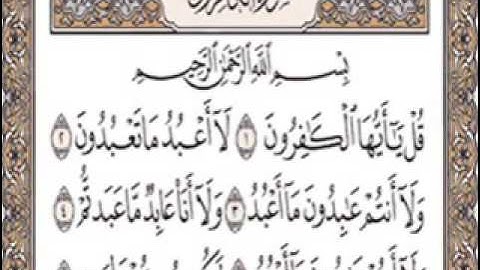 سورة الكافرون
بِسْمِ ٱللَّهِ ٱلرَّحْمَٰنِ ٱلرَّحِيمِ
قُلْ يَٰٓأَيُّهَا ٱلْكَٰفِرُونَ ١ لَآ أَعْبُدُ مَا تَعْبُدُونَ ٢
وَلَآ أَنتُمْ عَٰبِدُونَ مَآ أَعْبُدُ ٣ وَلَآ أَنَا۠ عَابِدٌ مَّا عَبَدتُّمْ ٤